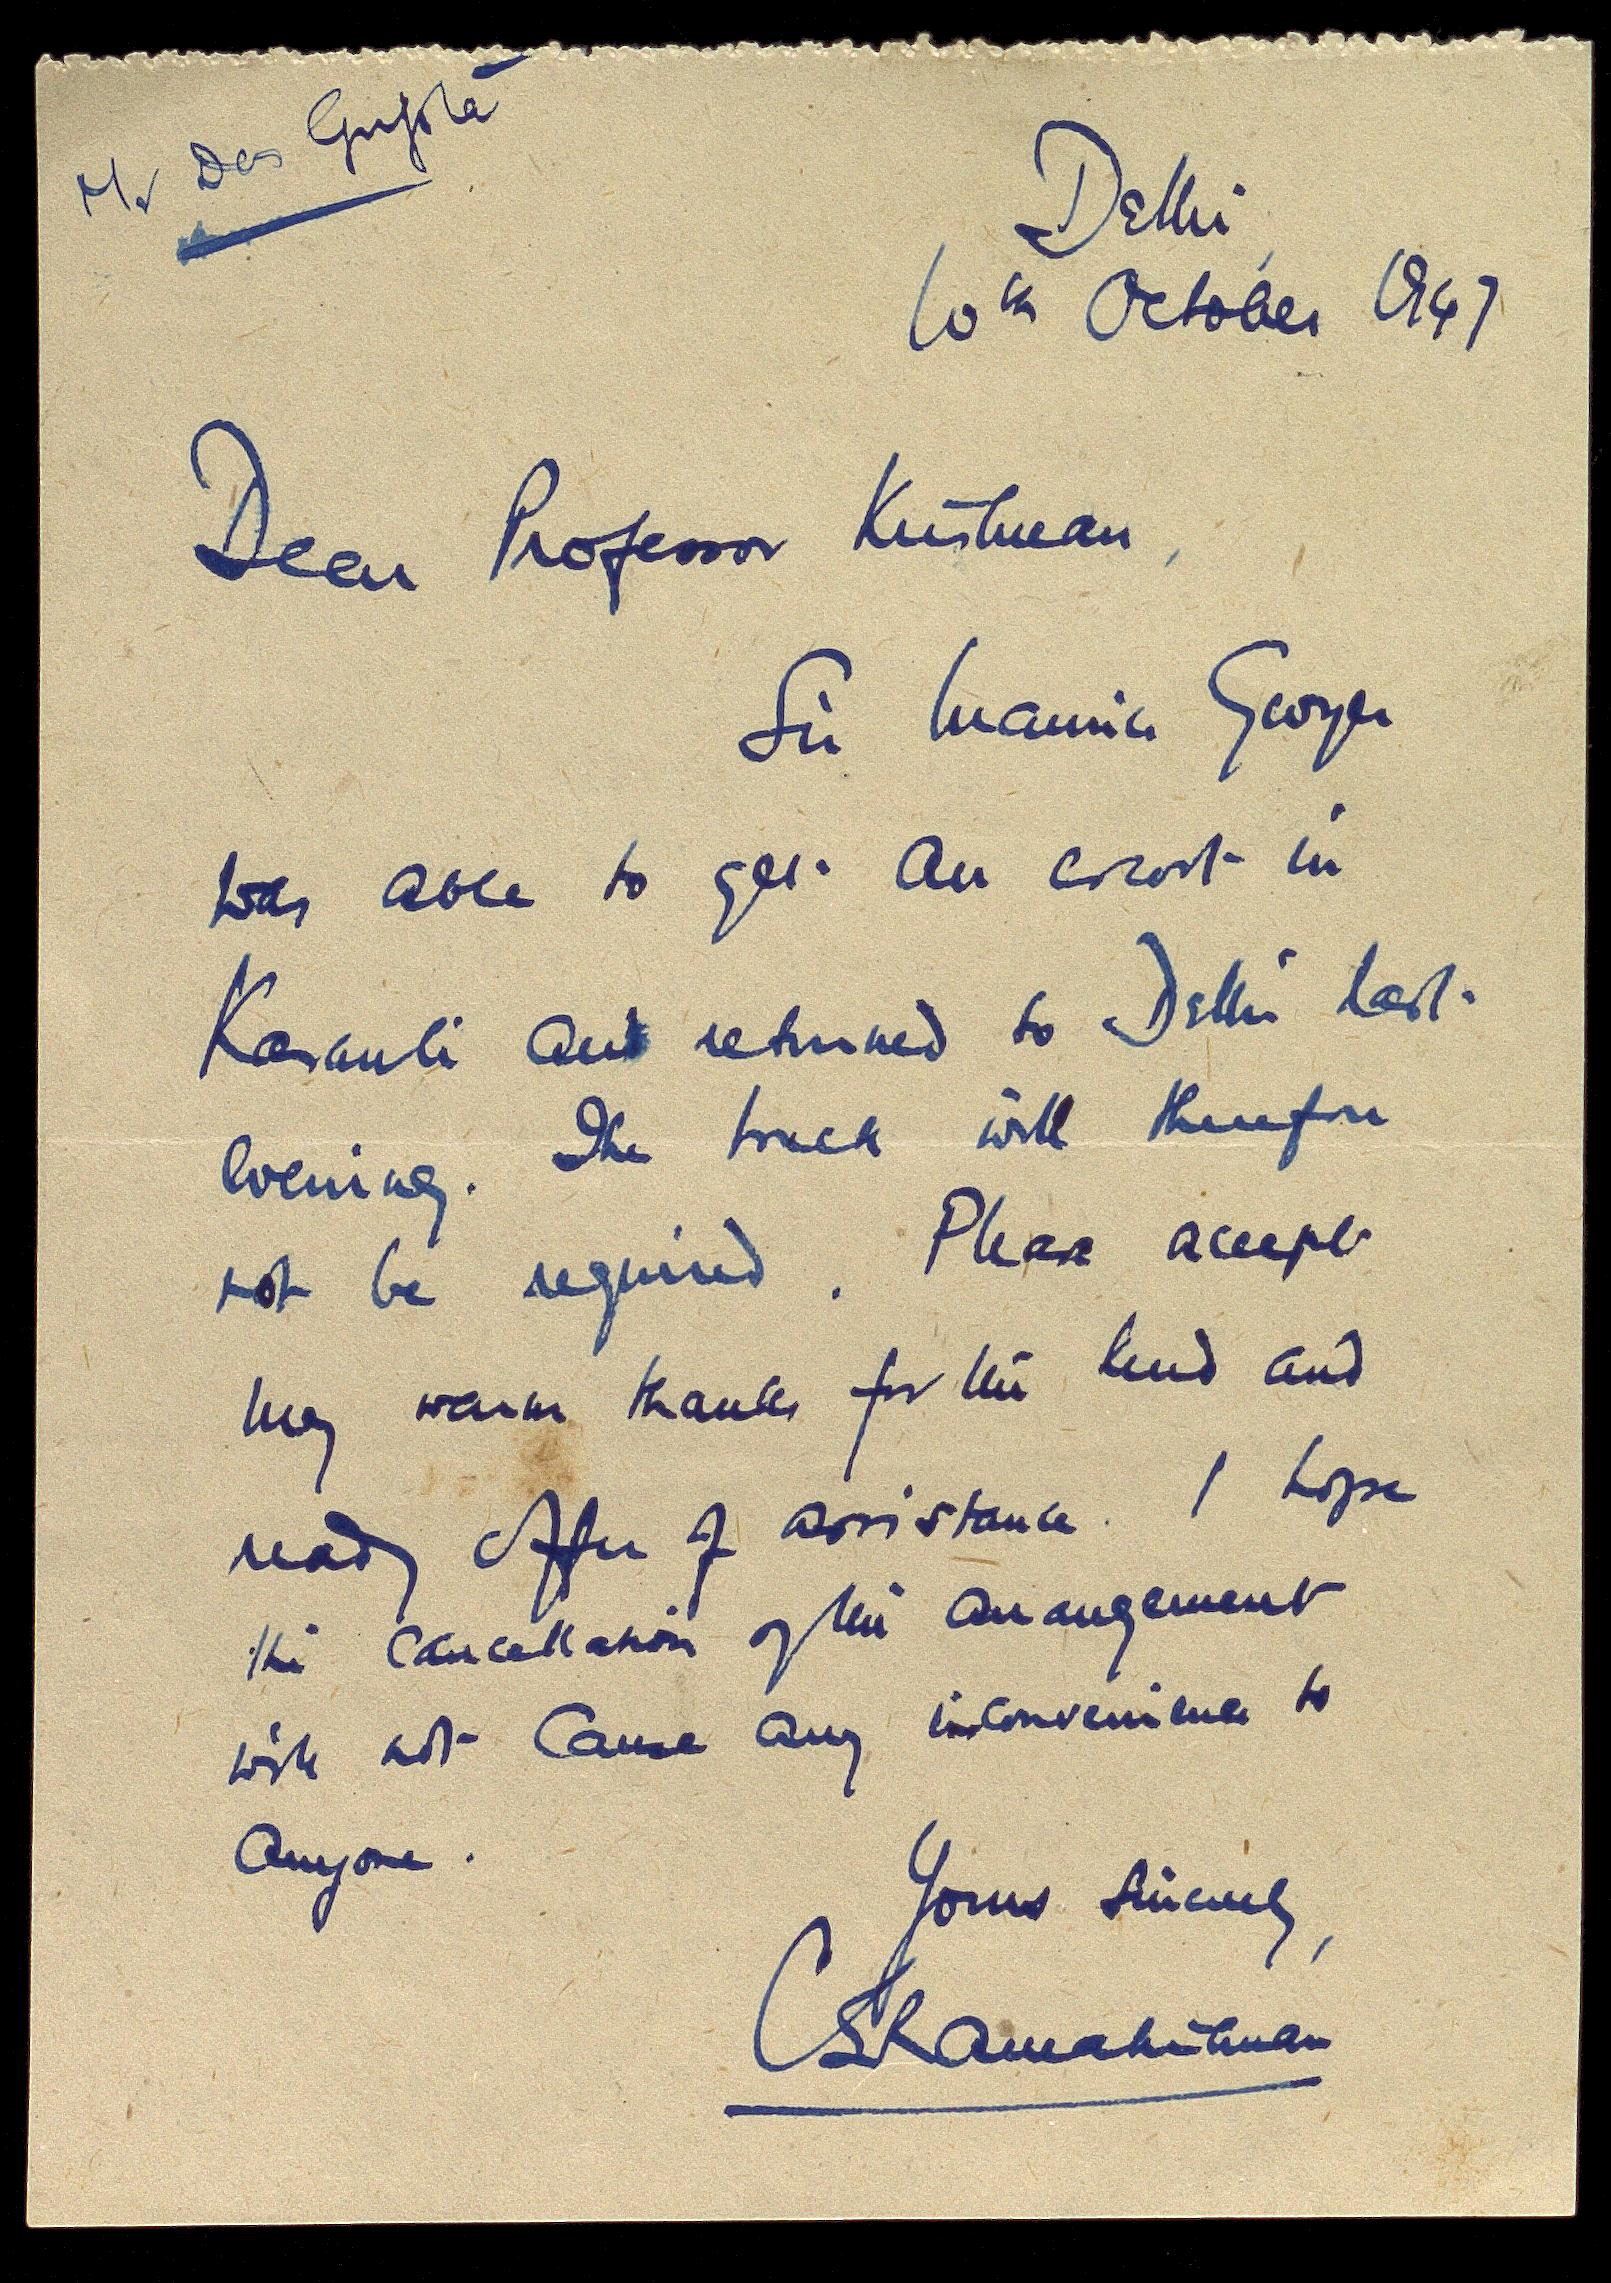 Mr Das Gupta
Delhi,
10th October 1947
Dear Professor Krishnan,
Sir Maurice Gwyer
was able to get an escort in
Kasauli and returned to Delhi last
evening. The truck will therefore
not be required. Please accept
my warm thanks for the kind and
ready offer of assistance. I hope
the cancellation of the arrangement
will not cause any inconvenience to
anyone.
Yours sincerely,
CSRamakrishnan